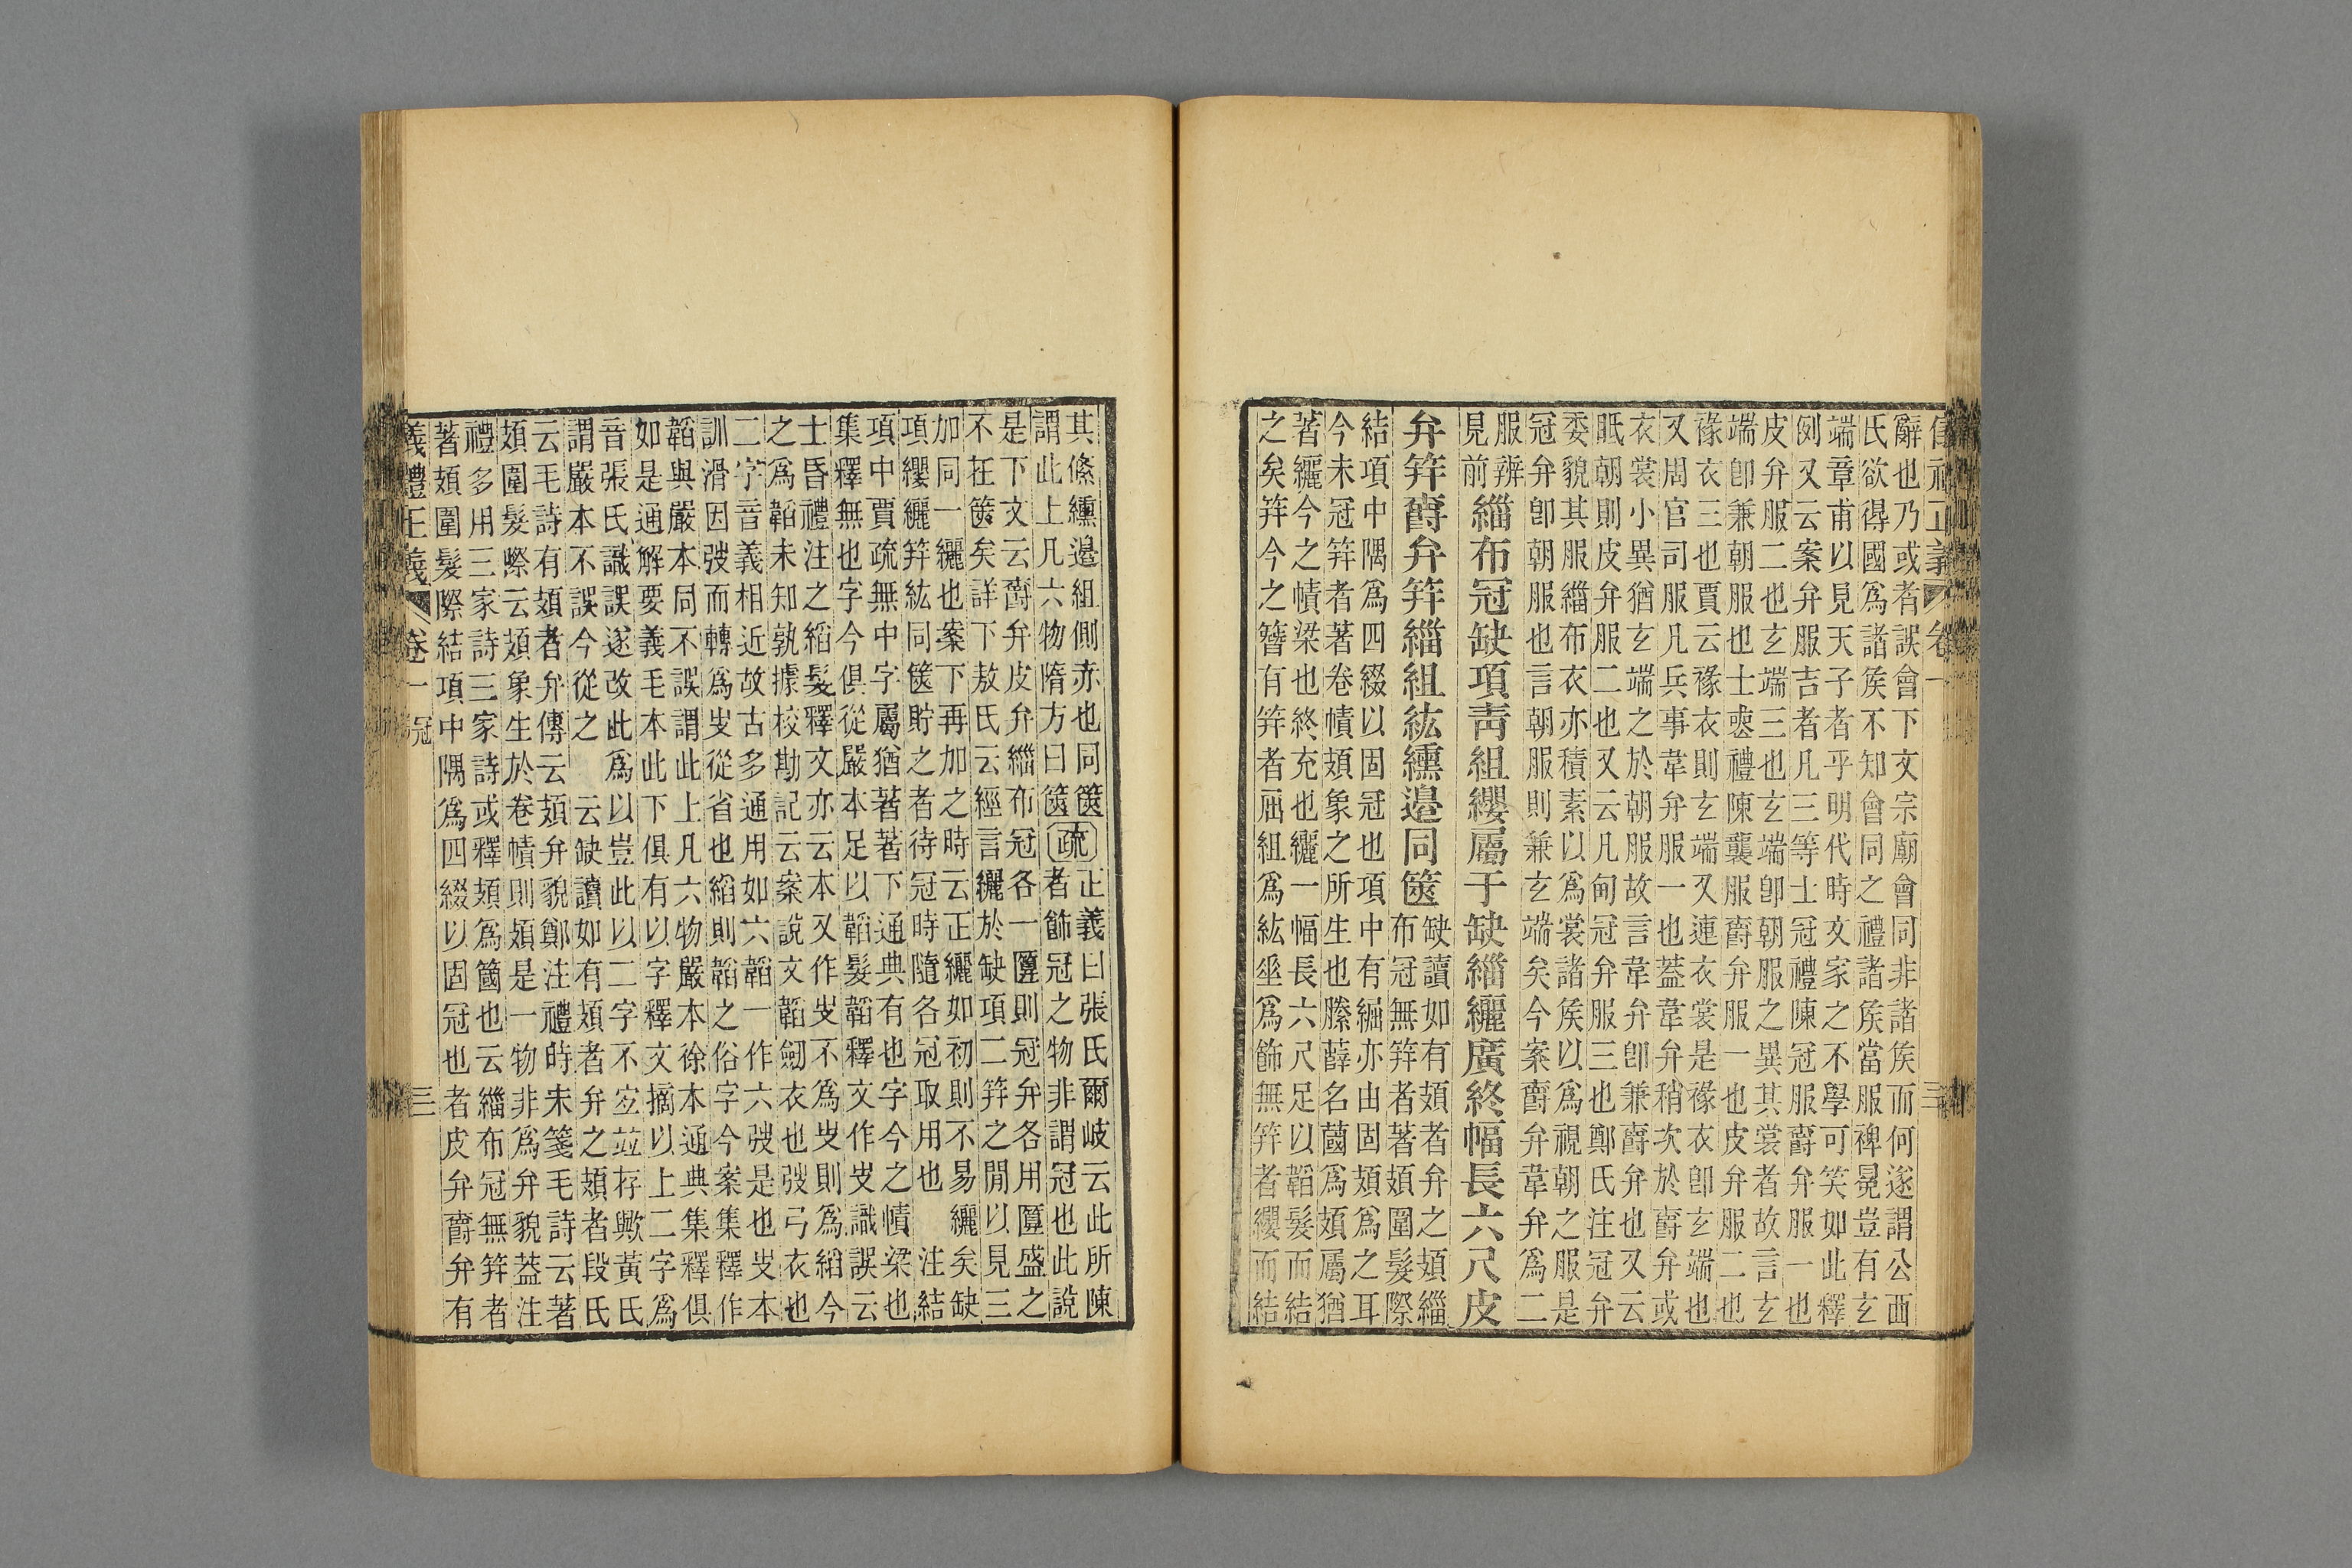 儀禮正義 卷一 三
辭也乃或者誤會下文宗廟會同非諸矦而何遂謂公西
氏欲得國爲諸矦不知會同之禮諸矦當服裨冕豈有玄
端章甫以見天子者乎明代時文家之不學可笑如此釋
例又云案弁服吉者凡三等士冠禮陳冠服爵弁服一也
皮弁服二也玄端三也玄端卽朝服之異其裳者故言玄
端卽兼朝服也士喪禮陳襲服爵弁服一也皮弁服二也
褖衣三也賈云褖衣則玄端又連衣裳是褖衣卽玄端也
又周官司服凡兵事韋弁服一也蓋韋弁稍次於爵弁或
衣裳小異猶玄端之於朝服故言韋弁卽兼爵弁也又云
眡朝則皮弁服二也又云凡甸冠弁服三也鄭氏注冠弁
委貌其服緇布衣亦積素以爲裳諸矦以爲視朝之服是
冠弁卽朝服也言朝服則兼玄端矣今案爵弁韋弁爲二
服辨
見前
緇布冠缺項靑組纓屬于缺緇纚廣終幅長六尺皮
弁笄爵弁笄緇組紘纁邊同篋
缺讀如有頍者弁之頍緇
布冠無笄者著頍圍髮際
結項中隅爲四綴以固冠也項中有䋿亦由固頍爲之耳
今未冠笄者著卷幘頍象之所生也滕薛名蔮爲頍屬猶
著纚今之幘梁也終充也纚一幅長六尺足以韜髮而結
之矣笄今之簪有笄者屈組爲紘垂爲飾無笄者纓而結
其絛纁邊組側赤也同篋
謂此上凡六物隋方曰篋
疏
正義曰張氏爾岐云此所陳
者飾冠之物非謂冠也此說
是下文云爵弁皮弁緇布冠各一匴則冠弁各用匴盛之
不在篋矣詳下敖氏云經言纚於缺項二笄之閒以見三
加同一纚也案下再加之時云正纚如初則不易纚矣缺
項纓纚笄紘同篋貯之者待冠時隨各冠取用也 注結
項中賈疏無中字屬猶著著下通典有也字今之幘梁也
集釋無也字今俱從嚴本足以韜髮韜釋文作𡬶識誤云
士昏禮注之縚髮釋文亦云本又作𡬶不爲𡬶則爲縚今
之爲韜未知孰據校勘記云案說文韜劒衣也弢弓衣也
二字音義相近故古多通用如六韜一作六弢是也𡬶本
訓滑因弢而轉爲𡬶從省也縚則韜之俗字今案集釋作
韜與嚴本同不誤謂此上凡六物嚴本徐本通典集釋俱
如是通解要義毛本此下俱有以字釋文摘以上二字爲
音張氏識誤遂改此爲以豈此以二字不宜竝存歟黃氏
謂嚴本不誤今從之 云缺讀如有頍者弁之頍者段氏
云毛詩有頍者弁傳云頍弁貌鄭注禮時未箋毛詩云著
頍圍髮際云頍象生於卷幘則頍是一物非爲弁貌蓋注
禮多用三家詩三家詩或釋頍爲簂也云緇布冠無笄者
著頍圍髮際結項中隅爲四綴以固冠也者皮弁爵弁有
儀禮正義 卷一 冠 三